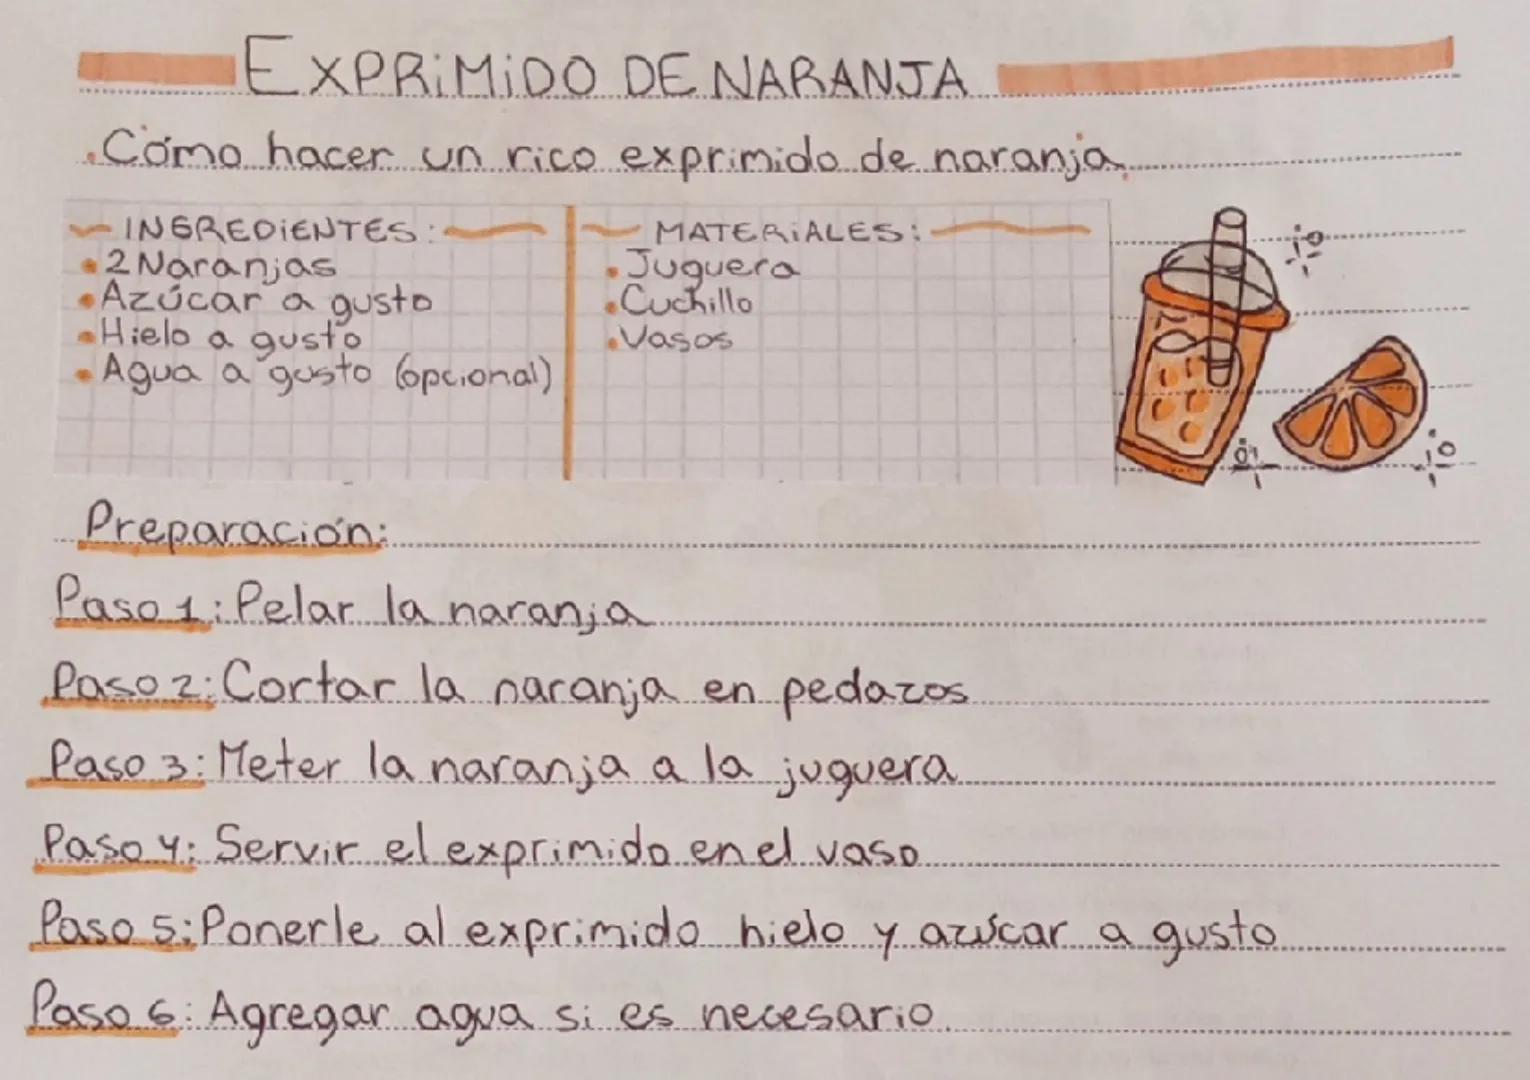 EXPRiMiDO DE NARANJA
.Cómo hacer un rico exprimido de naranja.
INGREDiENTES:
•2 Naranjas
•Azúcar a gusto
•Hielo a gusto
•Agua a gusto (opcional)
MATERiALES:
•Juguera
•Cuchillo
•Vasos
Preparación:
Paso 1: Pelar la naranja
Paso 2: Cortar la naranja en pedazos
Paso 3: Meter la naranja a la juguera
Paso 4: Servir el exprimido en el vaso
Paso 5: Ponerle al exprimido hielo y azúcar a gusto
Paso 6: Agregar agua si es necesario.